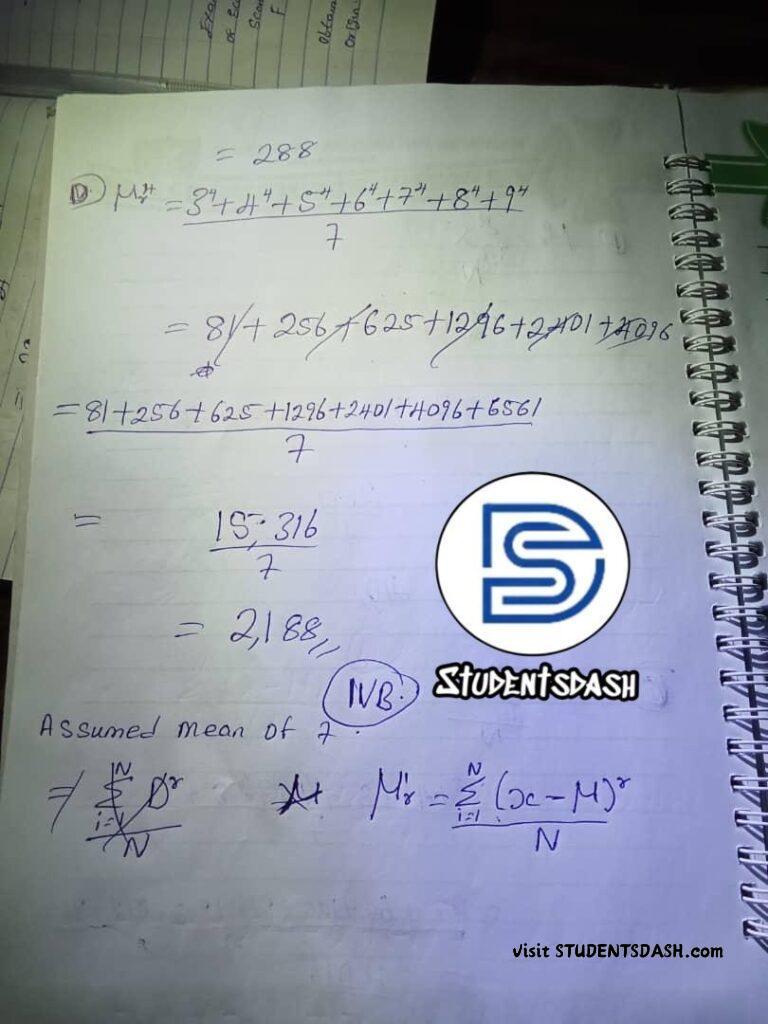 = 288
D. μr⁴ = 3⁴+4⁴+5⁴+6⁴+7⁴+8⁴+9⁴
7
= 81+256+625+1296+2401+4096
= 81+256+625+1296+2401+4096+6561
7
= 15,316
7
= 2,188,,
N.B.
STUDENTSDASH
Assumed mean of 7.
=> N Σ i=1 Dʳ μ'r = N Σ i=1 (x - μ)ʳ
N N
visit STUDENTSDASH.com